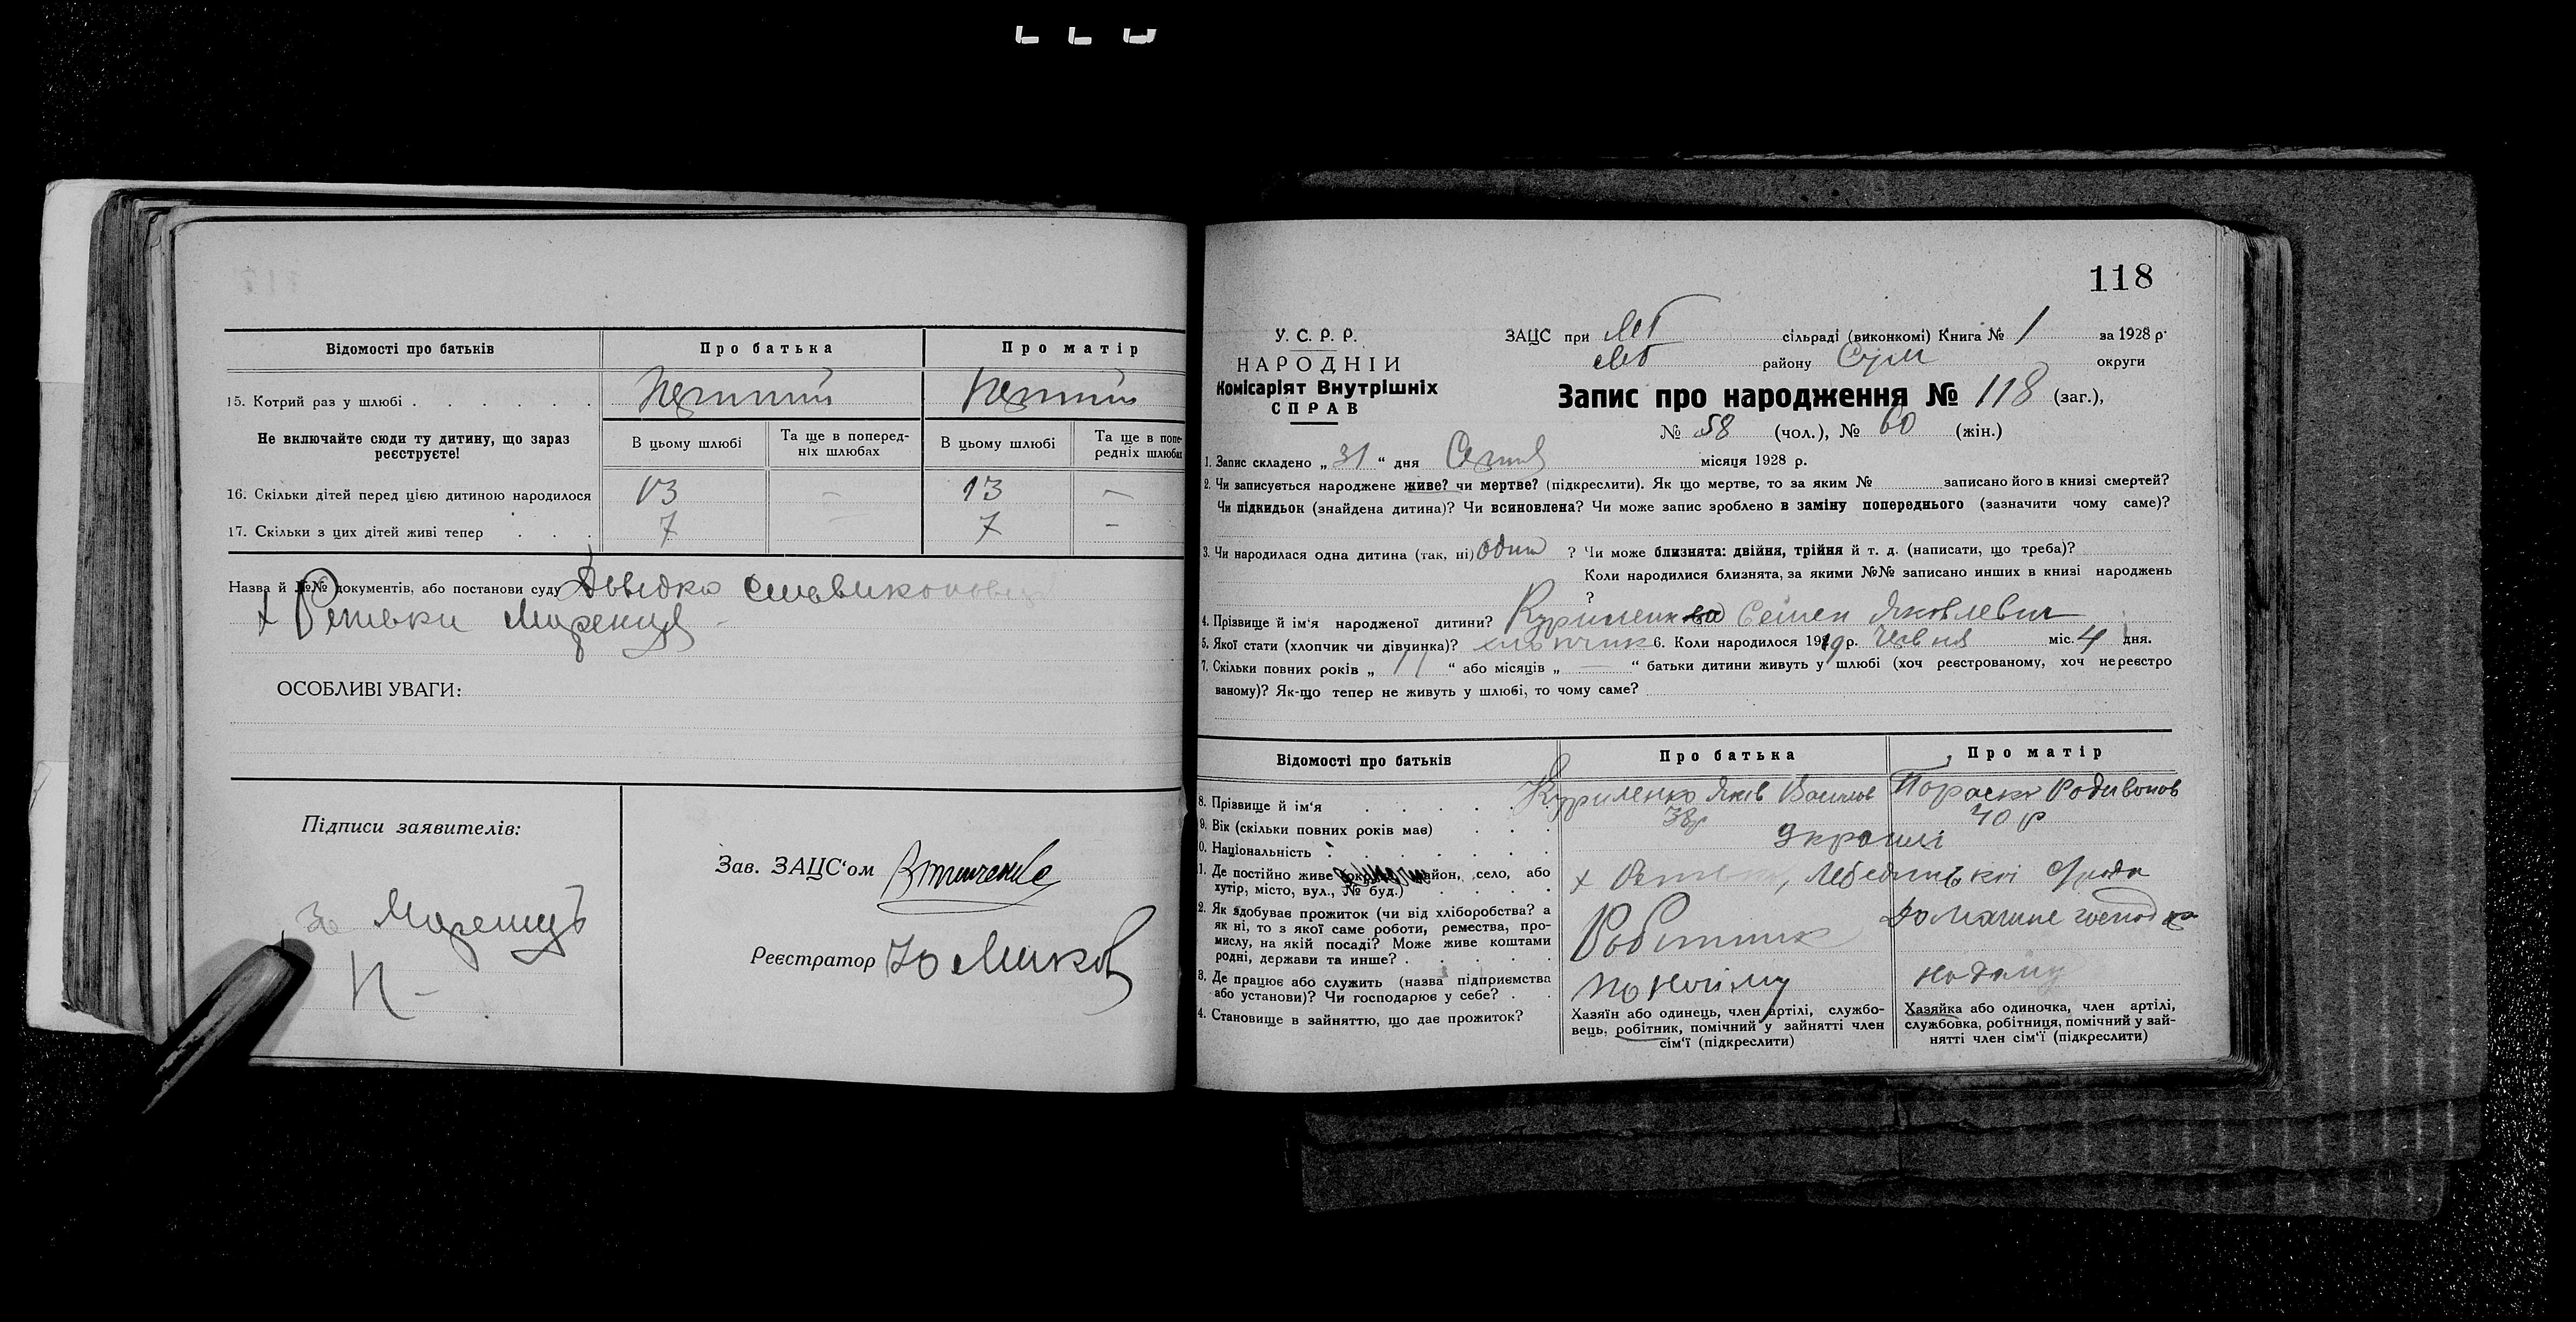 Відомості про батьків
Про батька
Про матір
15. Котрий раз у шлюбі . . . . . .
Перший
Перший
Не включайте сюди ту дитину, що зараз
реєструєте!
В цьому шлюбі
Та ще в поперед-
ніх шлюбах
В цьому шлюбі
Та ще в попе-
редніх шлюбах
16. Скільки дітей перед цією дитиною народилося
13
—
13
—
17. Скільки з цих дітей живі тепер . . .
7
—
7
—
Назва й №№ документів, або постанови суду
ОСОБЛИВІ УВАГИ:
Підписи заявителів:
Зав. ЗАЦС'ом
Реєстратор
118
У. С. Р. Р.
НАРОДНІЙ
Комісаріят Внутрішніх
СПРАВ
ЗАЦС при Леб сільраді (виконкомі) Книга № 1 за 1928 р.
Леб району Сум округи
Запис про народження № 118 (заг.),
№ 58 (чол.), № 60 (жін.)
1. Запис складено „ 31 “ дня місяця 1928 р.
2. Чи записується народжене живе? чи мертве? (підкреслити). Як що мертве, то за яким № записано його в книзі смертей?
Чи підкидьок (знайдена дитина)? Чи всиновлена? Чи може запис зроблено в заміну попереднього (зазначити чому саме)?
3. Чи народилася одна дитина (так, ні) одна ? Чи може близнята: двійня, трійня й т. д. (написати, що треба)?
Коли народилися близнята, за якими №№ записано инших в книзі народжень
?
4. Прізвище й ім'я народженої дитини? Куриленко Семен Яковлевич
5. Якої стати (хлопчик чи дівчинка)? хлопчик 6. Коли народилося 1919 р. Червня міс. 4 дня.
7. Скільки повних років „ 11 “ або місяців „ — “ батьки дитини живуть у шлюбі (хоч реєстрованому, хоч нереєстро
ваному)? Як-що тепер не живуть у шлюбі, то чому саме?
Відомості про батьків
Про батька
Про матір
8. Прізвище й ім'я . . . . .
Куриленко Яків Васильов
Параска Родивонов
9. Вік (скільки повних років має) . . .
38р
40 р
0. Національність . . . . . . . .
україні
1. Де постійно живе район, село, або
хутір, місто, вул., № буд.) . . . .
х Лебединської
2. Як здобуває прожиток (чи від хліборобства? а
як ні, то з якої саме роботи, ремества, про-
мислу, на якій посаді? Може живе коштами
родні, держави та инше? . . . . .
Робітник
Домашнє господ
3. Де працює або служить (назва підприємства
або установи)? Чи господарює у себе? . .
по найму
на дому
4. Становище в зайняттю, що дає прожиток?
Хазяїн або одинець, член артілі, службо-
вець, робітник, помічний у зайнятті член
сім'ї (підкреслити)
Хазяйка або одиночка, член артілі,
службовка, робітниця, помічний у зай-
нятті член сім'ї (підкреслити)